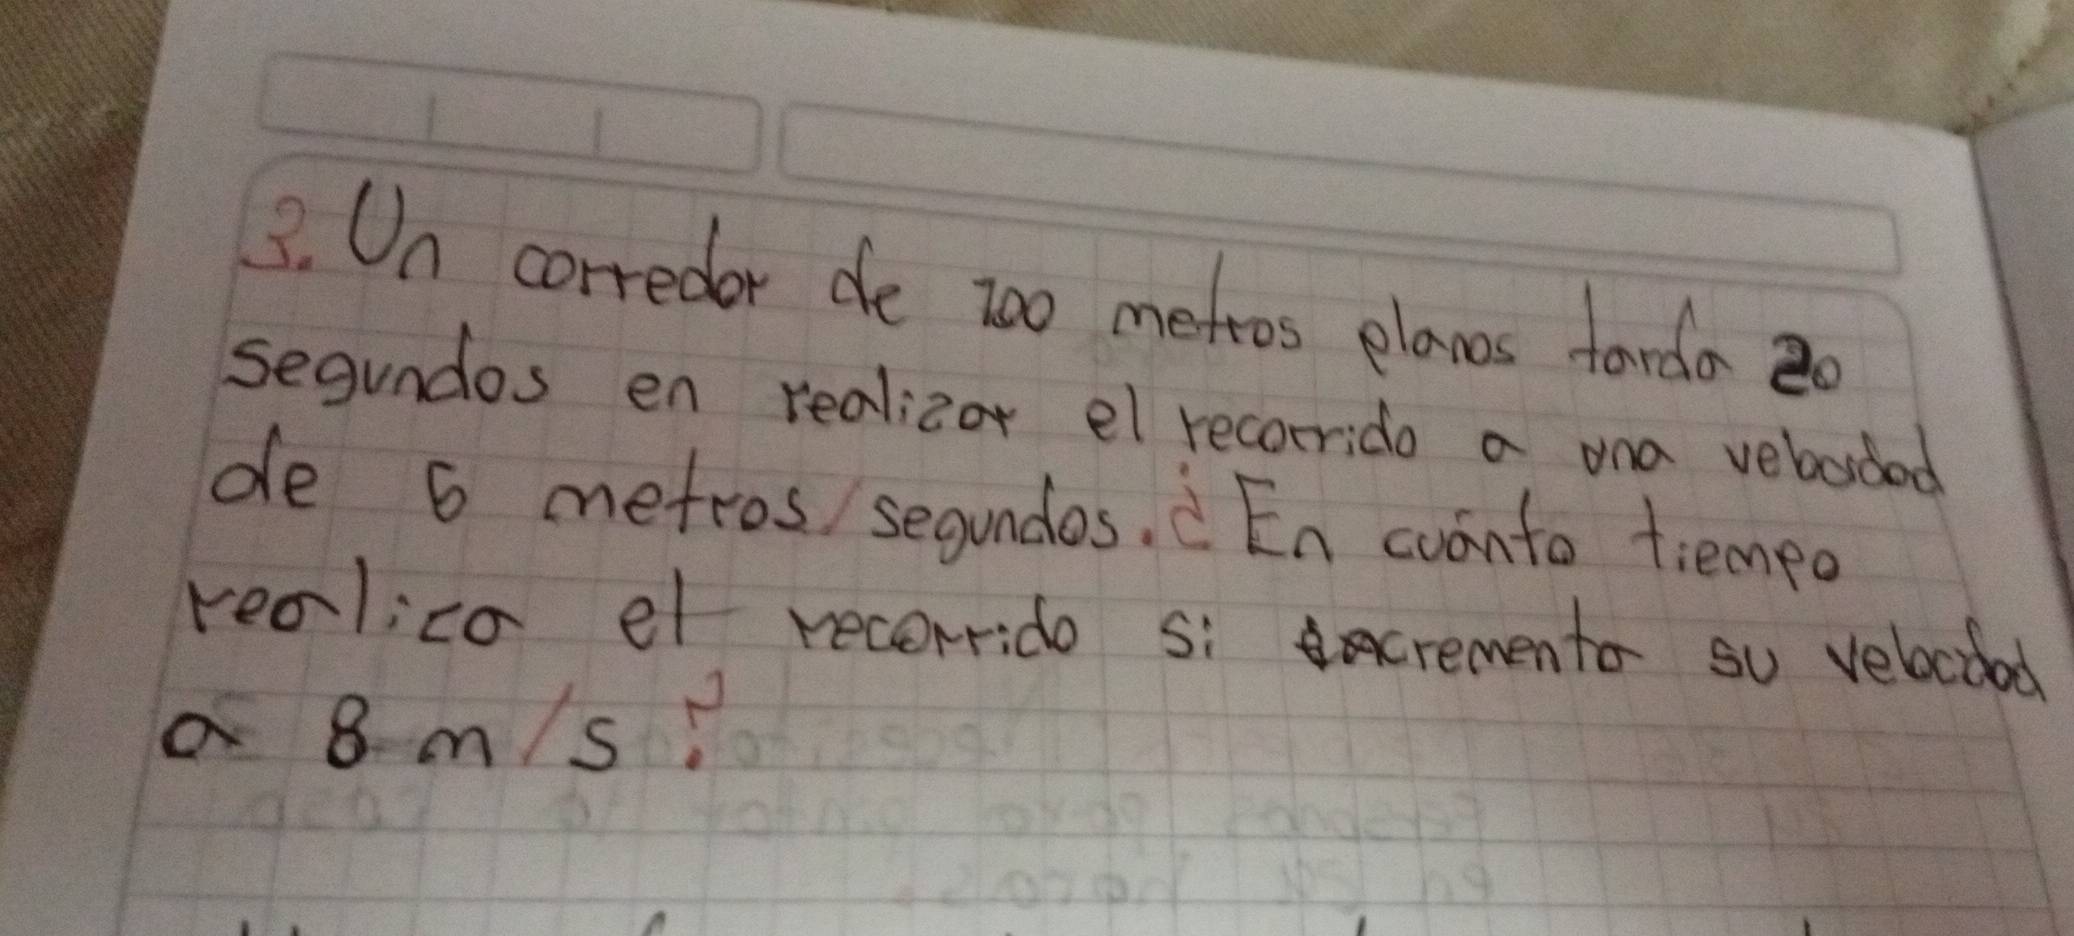 3. Un corredor de 100 metros planos tarda 20
segundos en realizar el recorrido a una velocidad
de 5 metros/segundos. ¿En cuánto tiempo
realica el recorrido si incrementa su velocidad
a 8 m/s?